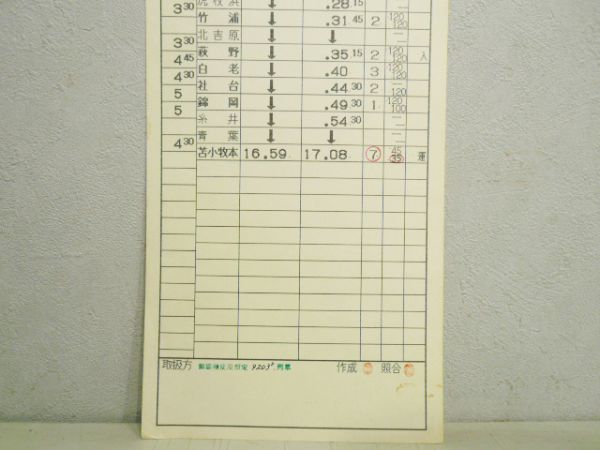 3 30 虎杖浜 ↓ .28 15
竹浦 ↓ .31 45 2 120 120
3 30 北吉原 ↓ ↓
4 45 萩野 ↓ .35 15 2 120 120 入
4 30 白老 ↓ .40 3 120 120
5 社台 ↓ .44 30 2 120
5 錦岡 ↓ .49 30 1 120 100
糸井 ↓ .54 30
4 30 青葉 ↓ ↓
苫小牧本 16.59 17.08 7 45 35 運
取扱方 列車 作成 照合